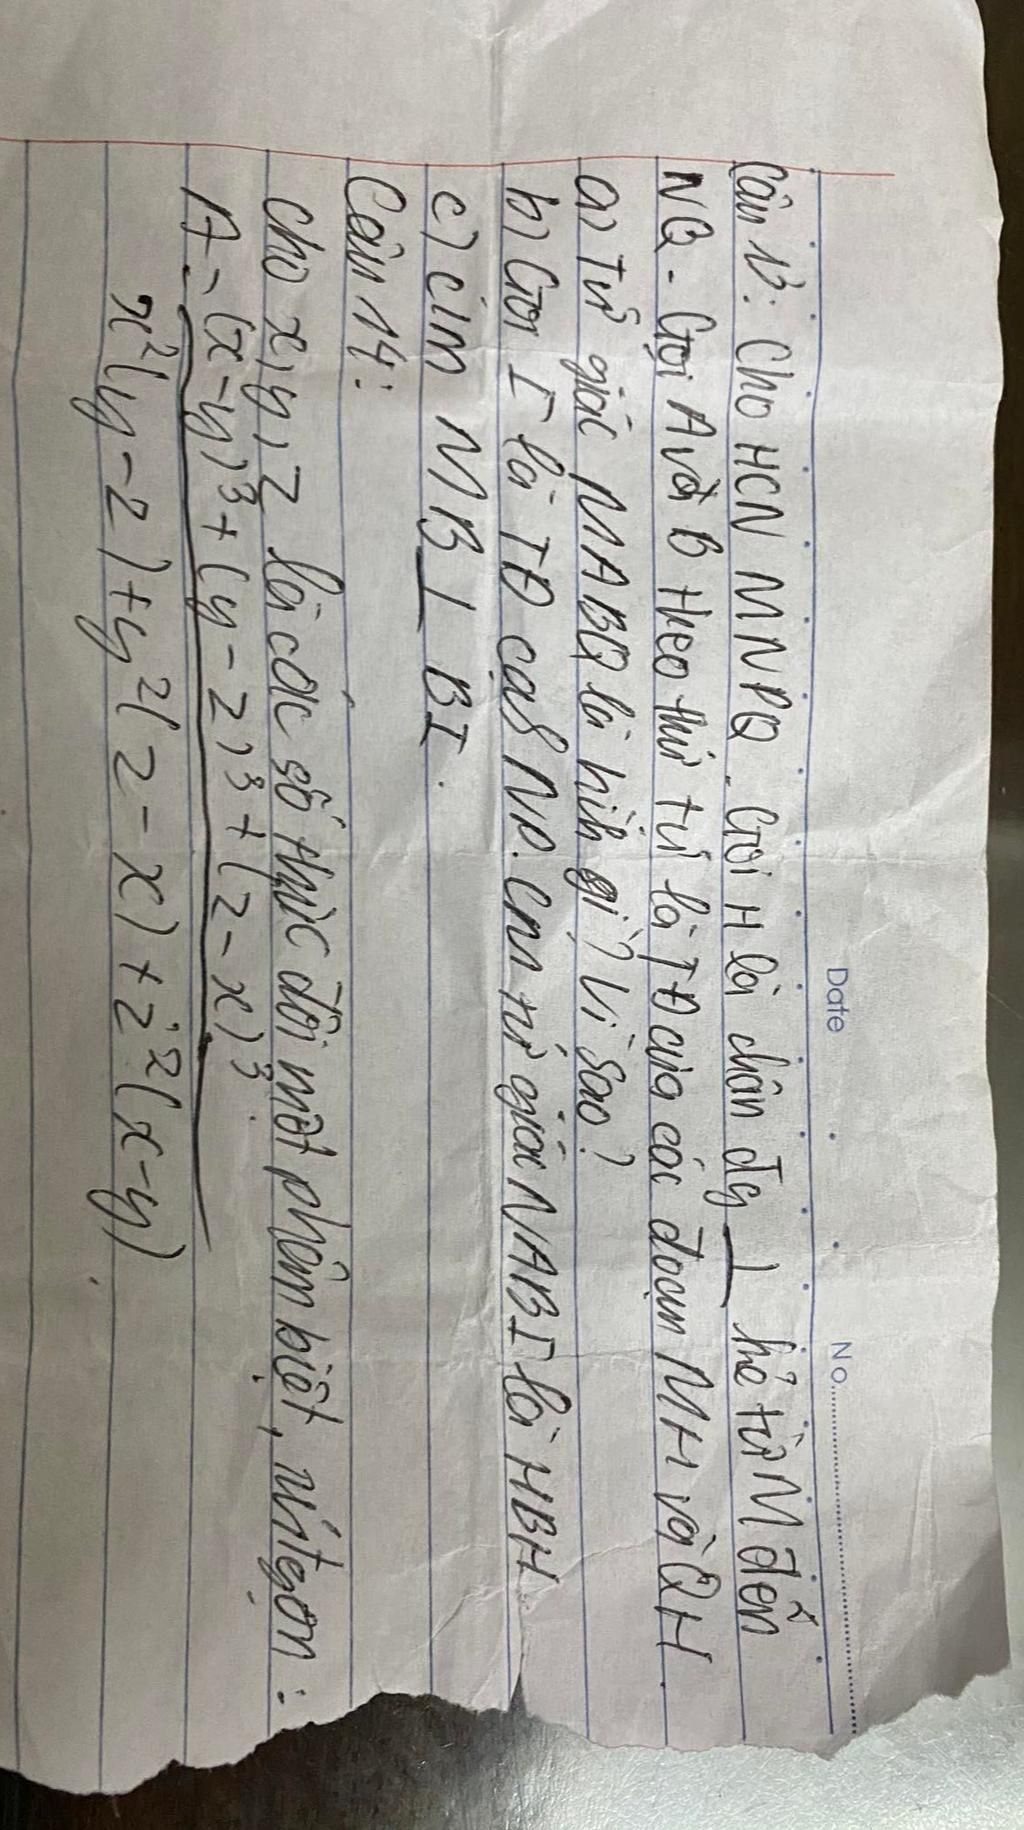 Date
No.
Câu 13: Cho HCN MNPQ. Gọi H là chân đg ⊥ kẻ từ M đến
NQ. Gọi A và B theo thứ tự là TĐ của các đoạn MH và QH.
a) Tứ giác MABQ là hình gì? Vì sao?
b) Gọi I là TĐ cạ8 NP. Cm tứ giác NABI là HBH
c) Cm MB ⊥ BI.
Câu 14:
Cho x, y, z là các số thực đôi một phân biệt, rút gọn:
A = (x - y)³ + (y - z)³ + (z - x)³
x²(y - z) + y²(z - x) + z²(x - y)